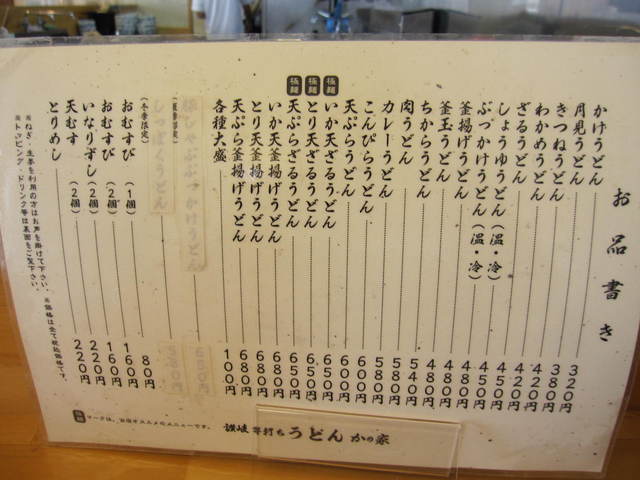 お品書き
かけうどん 320円
月見うどん 380円
きつねうどん 420円
わかめうどん 420円
ざるうどん 450円
しょうゆうどん（温・冷） 450円
ぶっかけうどん（温・冷） 480円
釜揚げうどん 480円
釜玉うどん 480円
ちからうどん 540円
肉うどん 580円
カレーうどん 580円
こんぴらうどん 600円
天ぷらうどん 600円
極麺 いか天ざるうどん 650円
極麺 とり天ざるうどん 650円
極麺 天ぷらざるうどん 650円
いか天釜揚げうどん 680円
とり天釜揚げうどん 680円
天ぷら釜揚げうどん 680円
各種大盛 100円
ぶっかけうどん
しっぽくうどん
（冬季限定）
おむすび（1個） 80円
おむすび（2個） 160円
いなりずし（2個） 160円
天むす（2個） 220円
とりめし 220円
※ねぎ・生姜を利用の方はお声を掛けて下さい。 ※価格は全て税込価格です。
※トッピング・ドリンク等は裏面をご覧下さい。
極麺 マークは、当店オススメのメニューです。
讃岐手打ちうどんかの家